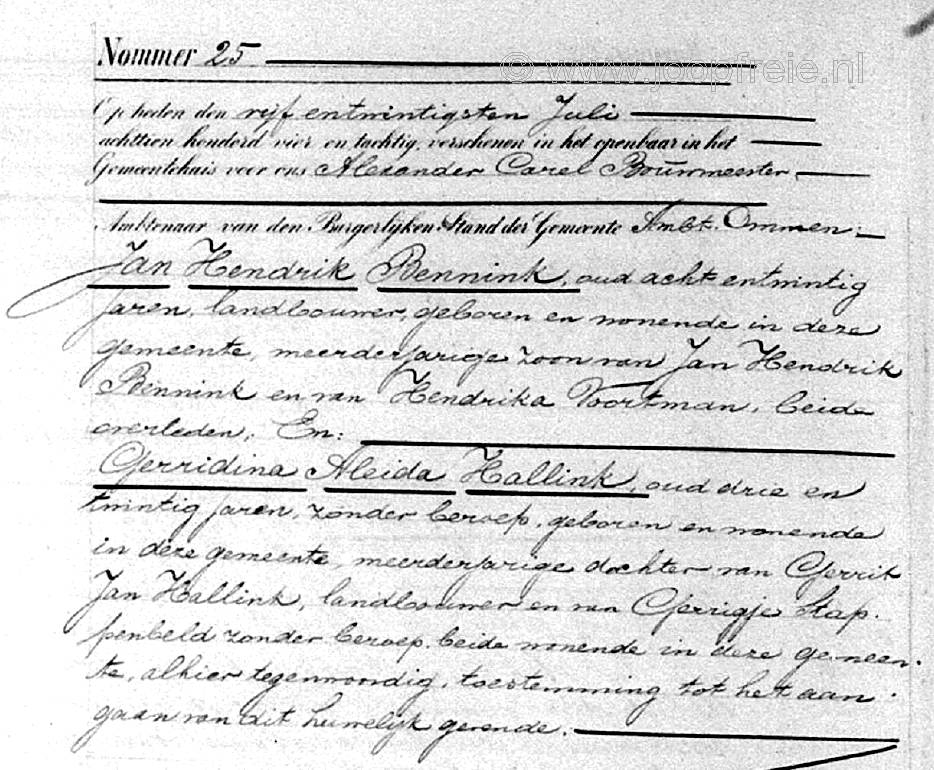 Nommer 25
© www.joopfreie.nl
Op heden den vijf entwintigsten Juli
achttien honderd vier en tachtig, verschenen in het openbaar in het
Gemeentehuis voor ons Alexander Carel Bouwmeester
Ambtenaar van den Burgerlijken Stand der Gemeente Ambt-Ommen:
Jan Hendrik Bennink, oud acht entwintig
jaren, landbouwer, geboren en wonende in deze
gemeente, meerderjarige zoon van Jan Hendrik
Bennink en van Hendrika Voortman, beide
overleden; En:
Gerridina Aleida Hallink, oud drie en
twintig jaren, zonder beroep, geboren en wonende
in deze gemeente, meerderjarige dochter van Gerrit
Jan Hallink, landbouwer en van Gerrigje Stap-
penbeld zonder beroep, beide wonende in deze gemeen-
te, alhier tegenwoordig, toestemming tot het aan-
gaan van dit huwelijk gevende.